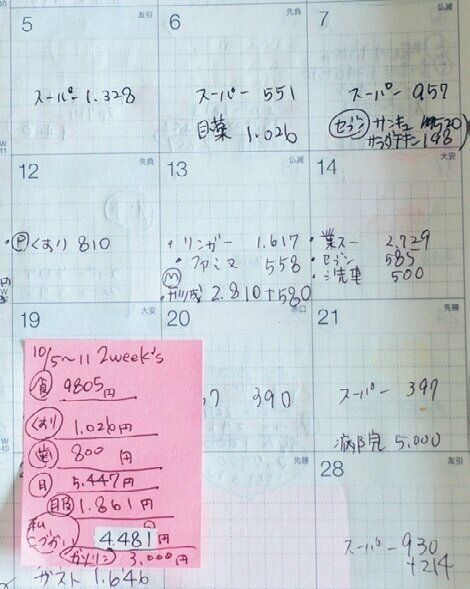 5 友引
6 先負
7 仏滅
スーパー 1.328
スーパー 551
目薬 1.026
スーパー 957
セブン サンキュ
サラダチキン 198
12 先負
13 仏滅
14 大安
くすり 810
・リンガー 1.617
・ファミマ 558
2.810+580
・業スー 2.729
・セブン 585
・洗車 500
19 大安
20
21 先勝
390
スーパー 397
病院 5.000
10/5~11 2week's
食 9805円
くすり 1.026円
800円
5.447円
1.861円
私こづかい 4.481円
ガソリン 3.000円
先勝
28 友引
スーパー 930
+214
ガスト 1.646